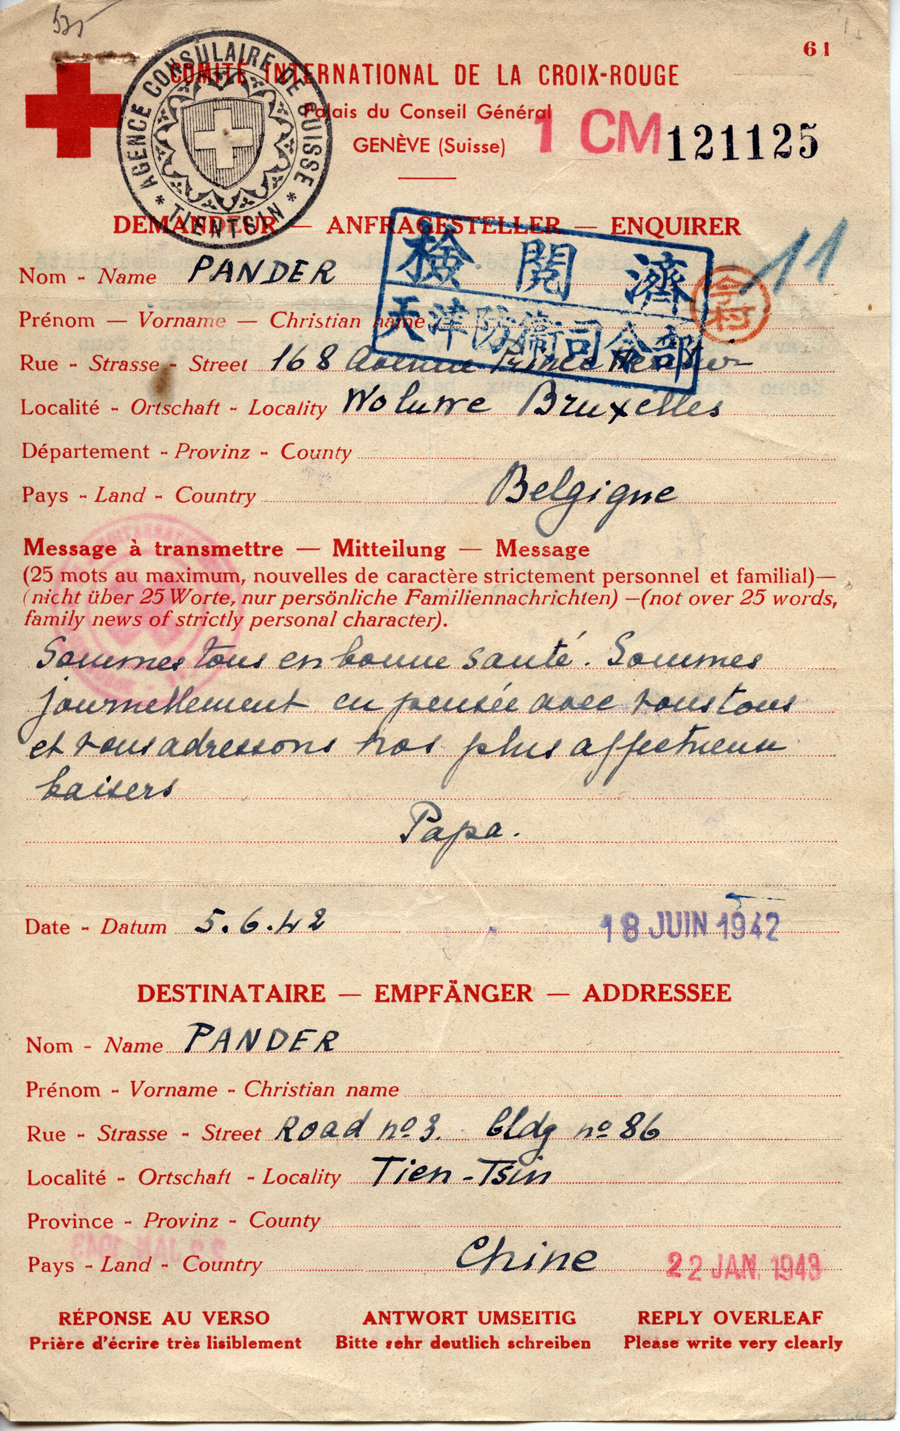 61
COMITÉ INTERNATIONAL DE LA CROIX-ROUGE
Palais du Conseil Général
GENÈVE (Suisse)
1 CM 121125
AGENCE CONSULAIRE DE SUISSE
* TIENTSIN *
DEMANDEUR — ANFRAGESTELLER — ENQUIRER
検閲済
天津防衛司令部
11
Nom - Name PANDER
Prénom — Vorname — Christian name
今村
Rue - Strasse - Street 168 Avenue Prince Héritier
Localité - Ortschaft - Locality Woluwe Bruxelles
Département - Provinz - County
Pays - Land - Country Belgique
Message à transmettre — Mitteilung — Message
(25 mots au maximum, nouvelles de caractère strictement personnel et familial)—
(nicht über 25 Worte, nur persönliche Familiennachrichten) —(not over 25 words,
family news of strictly personal character).
Sommes tous en bonne santé. Sommes
journellement en pensée avec vous tous
et vous adressons nos plus affectueux
baisers
Papa.
Date - Datum 5.6.42
18 JUIN 1942
DESTINATAIRE — EMPFÄNGER — ADDRESSEE
Nom - Name PANDER
Prénom - Vorname - Christian name
Rue - Strasse - Street Road nº 3. Bldg nº 86
Localité - Ortschaft - Locality Tien-Tsin
Province - Provinz - County
Pays - Land - Country Chine
22 JAN. 1943
RÉPONSE AU VERSO ANTWORT UMSEITIG REPLY OVERLEAF
Prière d'écrire très lisiblement Bitte sehr deutlich schreiben Please write very clearly